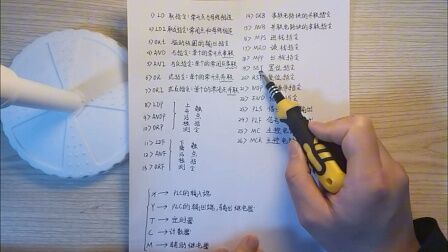 1) LD 取指令：常开点与母线相连
2) LDI 取指令：常闭点与母线相连
3) OUT 驱动线圈的输出指令
4) AND 与指令：单个的常开点串联
5) ANI 与指令：单个的常闭点串联
6) OR 或指令：单个的常开点并联
7) ORI 或指令：单个的常闭点并联
8) LDP
9) ANDP
10) ORP
上升沿检测
触点指令
11) LDF
12) ANDF
13) ORF
下降沿检测
触点指令
14) ORB
15) ANB
16) MPS 进栈指令
17) MRD 读栈指令
18) MPP 出栈指令
19) SET 置位指令
20) RST 复位指令
21) NOP
22) END
23) PLS
24) PLF
25) MC 主控
26) MCR 主控
X → PLC的输入端
Y → PLC的输出端，输出继电器
T → 定时器
C → 计数器
M → 辅助继电器